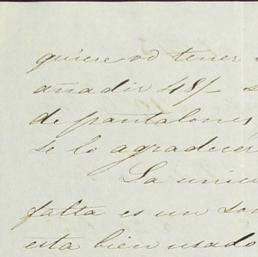 quiere vd tener
añadir 48/-
de pantalones
se lo agradecer
La unic
falta es un som
esta bien usado